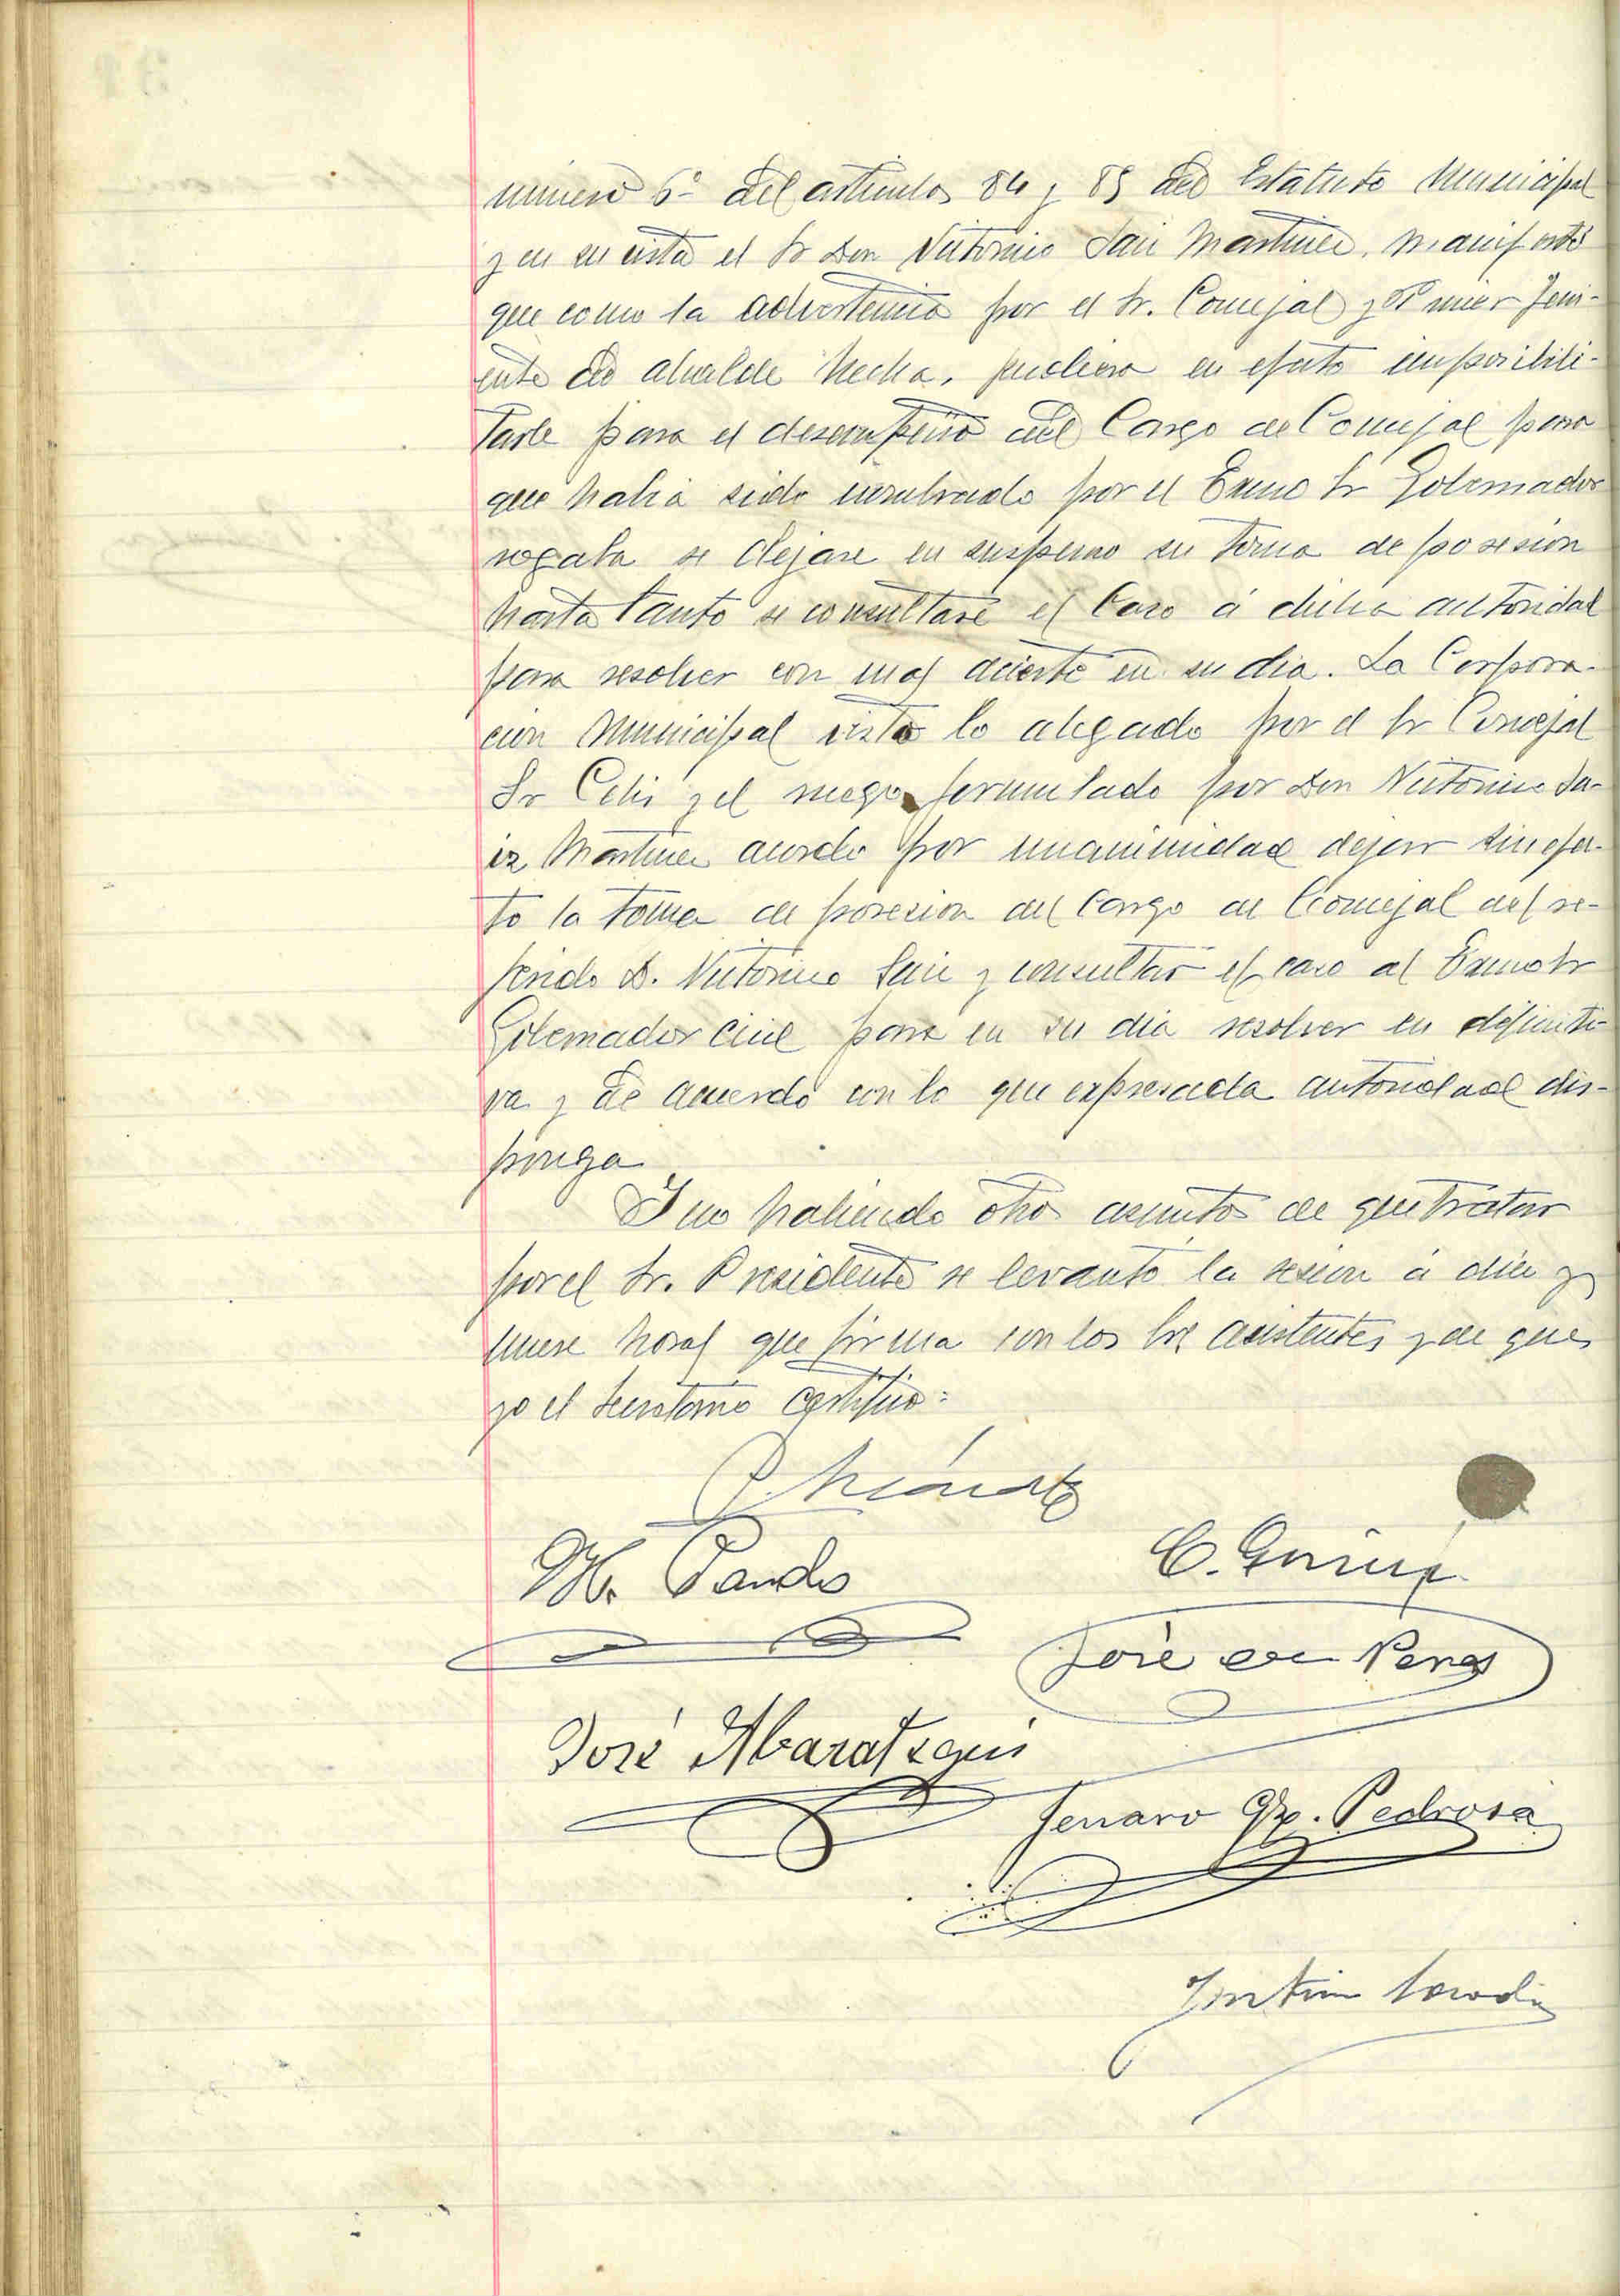 número 6º del artículos 84 y 85 del Estatuto Municipal
y en su vista el Sr Don Victorino Saiz Martinez, manifestó
que como la advertencia por el Sr. Concejal y Primer Teni-
ente de Alcalde hecha, pudiera en efecto imposibili-
tarle para el desempeño del Cargo de Concejal para
que habia sido nombrado por el Exmo Sr Gobernador
rogaba se dejase en suspenso su toma de posesión
hasta tanto se consultase el Caso á dicha autoridad
para resolver con mas acierto en su dia. La Corpora-
cion Municipal visto lo alegado por el Sr Concejal
Sr Celis y el ruego formulado por Don Victorino Sa-
iz Martinez acordo por unanimidad dejar sin efec-
to la toma de posesion del Cargo de Concejal del re-
ferido D. Victorino Saiz y consultar el caso al Exmo Sr
Gobernador Civil para en su dia resolver en definiti-
va y de acuerdo con lo que expresada autoridad dis-
ponga
Y no habiendo otros asuntos de que tratar
por el Sr. Presidente se levantó la sesion á diez y
nueve horas que firma con los Sres asistentes y de que
yo el Secretario certifico:
M. Pando
C. García
José de Perez
José Abarategui
Jenaro Gz. Pedrosa